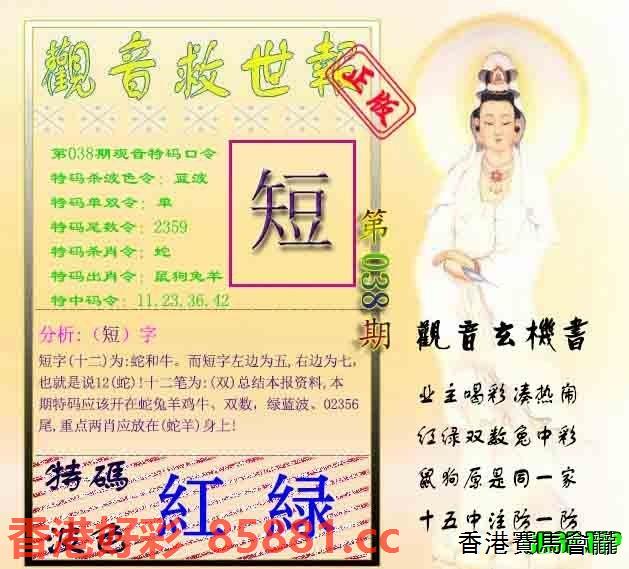 觀音救世報
正版
第038期观音特码口令
特码杀波色令：蓝波
特码单双令：单
特码尾数令：2359
特码杀肖令：蛇
特码出肖令：鼠狗兔羊
特中码令：11.23.36.42
短
第038期
分析:（短）字
短字(十二)为:蛇和牛。而短字左边为五,右边为七,
也就是说12(蛇)!十二笔为:(双)总结本报资料,本
期特码应该开在蛇兔羊鸡牛、双数，绿蓝波、02356
尾,重点两肖应放在(蛇羊)身上!
觀音玄機書
业主喝彩凑热闹
红绿双数兔中彩
鼠狗原是同一家
十五中注防一防
特碼
波色
紅 緑
香港好彩 85881.cc
香港賽馬會